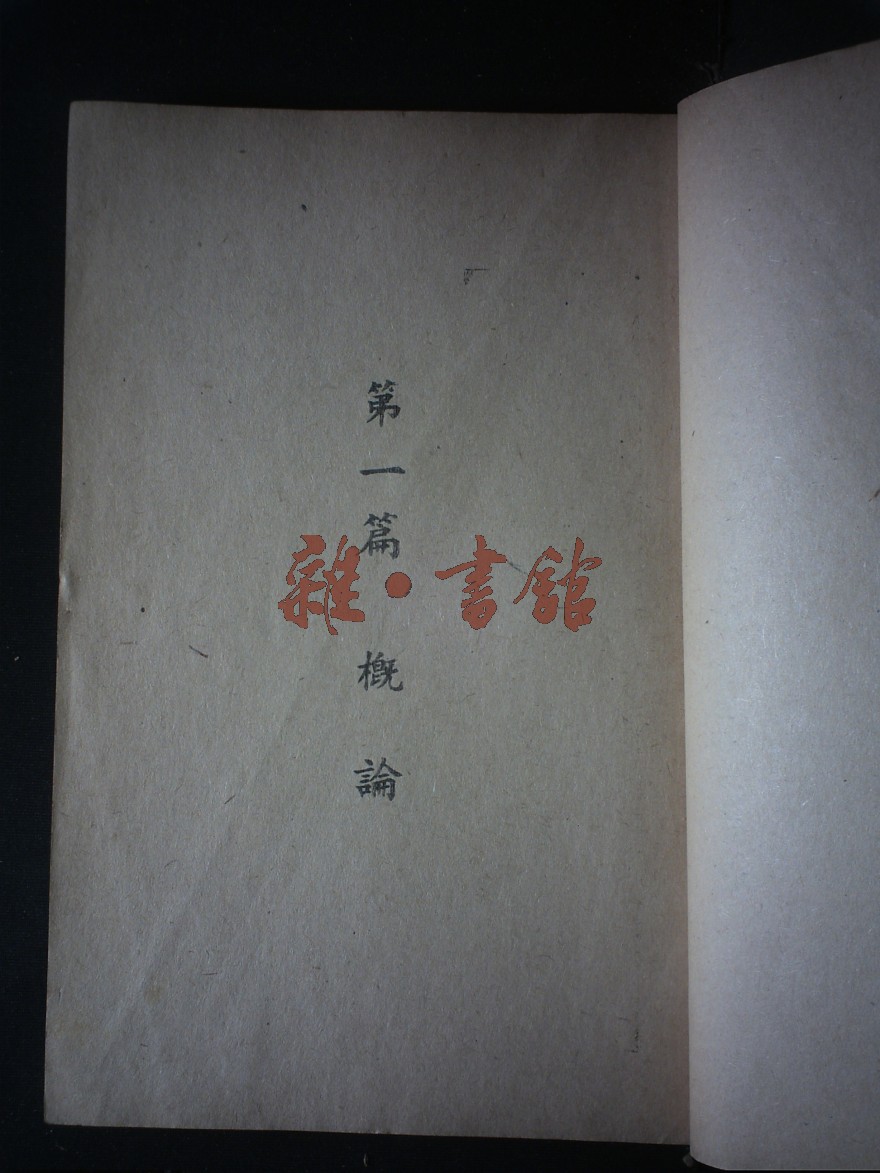 第一篇 概論
雜·書館